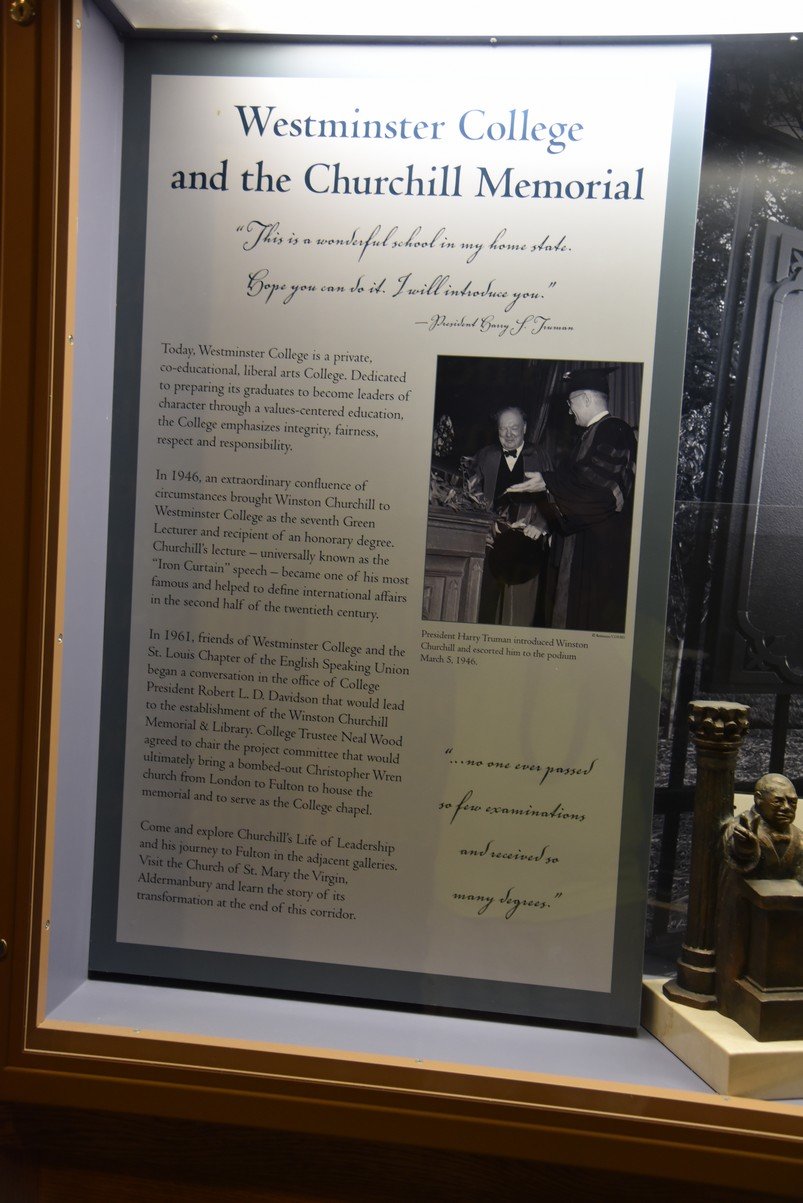 Westminster College
and the Churchill Memorial
“This is a wonderful school in my home state.
Hope you can do it. I will introduce you.”
—President Harry S. Truman
Today, Westminster College is a private,
co-educational, liberal arts College. Dedicated
to preparing its graduates to become leaders of
character through a values-centered education,
the College emphasizes integrity, fairness,
respect and responsibility.
In 1946, an extraordinary confluence of
circumstances brought Winston Churchill to
Westminster College as the seventh Green
Lecturer and recipient of an honorary degree.
Churchill’s lecture – universally known as the
“Iron Curtain” speech – became one of his most
famous and helped to define international affairs
in the second half of the twentieth century.
In 1961, friends of Westminster College and the
St. Louis Chapter of the English Speaking Union
began a conversation in the office of College
President Robert L. D. Davidson that would lead
to the establishment of the Winston Churchill
Memorial & Library. College Trustee Neal Wood
agreed to chair the project committee that would
ultimately bring a bombed-out Christopher Wren
church from London to Fulton to house the
memorial and to serve as the College chapel.
Come and explore Churchill’s Life of Leadership
and his journey to Fulton in the adjacent galleries.
Visit the Church of St. Mary the Virgin,
Aldermanbury and learn the story of its
transformation at the end of this corridor.
President Harry Truman introduced Winston
Churchill and escorted him to the podium
March 5, 1946.
“...no one ever passed
so few examinations
and received so
many degrees.”